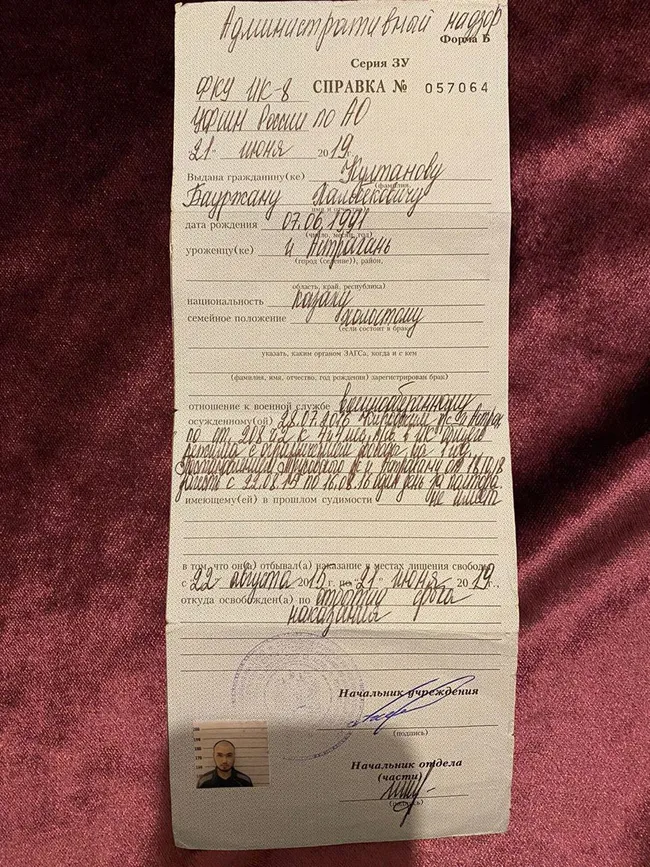 Административный надзор
Форма Б
Серия ЗУ
ФКУ ИК-8 СПРАВКА № 057064
УФСИН России по АО
21 июня 2019 г.
Выдана гражданину(ке) Култанову
(фамилия,
Бауржану
имя и отчество)
дата рождения 07.06.1991
(число, месяц, год)
уроженцу(ке) г. Астрахань
(город (селение)), район,
область, край, республика)
национальность казаху
семейное положение холостому
(если состоит в браке
указать, каким органом ЗАГСа, когда и с кем
(фамилия, имя, отчество, год рождения) зарегистрирован брак)
отношение к военной службе военнообязанному
осужденному(ой) 28.07.2016
по ст. 208 ч.2 к
режима с ограничением свободы на 1 год
с 22.08.15 по 16.08.16 один день за полтора
имеющему(ей) в прошлом судимости
не имеет
в том, что он(а) отбывал(а) наказание в местах лишения свободы
с 22 августа 2015 г. по "21" июня 2019 г.,
откуда освобожден(а) по отбытии срока
наказания
Начальник учреждения
(подпись)
Начальник отдела
(части)
(подпись)